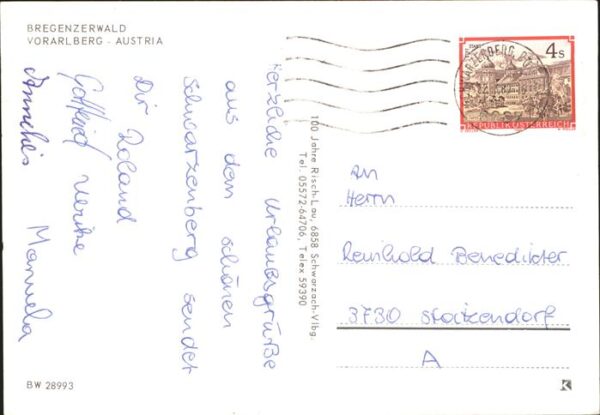 BREGENZERWALD
VORARLBERG - AUSTRIA
Herzliche Urlaubsgrüße
aus dem schönen
Schwarzenberg sendet
Dir Roland
Gottfried Ulrike
Manuela
BW 28993
100 Jahre Risch-Lau, 6858 Schwarzach-Vlbg.
Tel. 05572-64706, Telex 59390
4 S
STAMS
REPUBLIK ÖSTERREICH
An
Herrn
Reinhold Benedikter
3730 Statzendorf
A
K